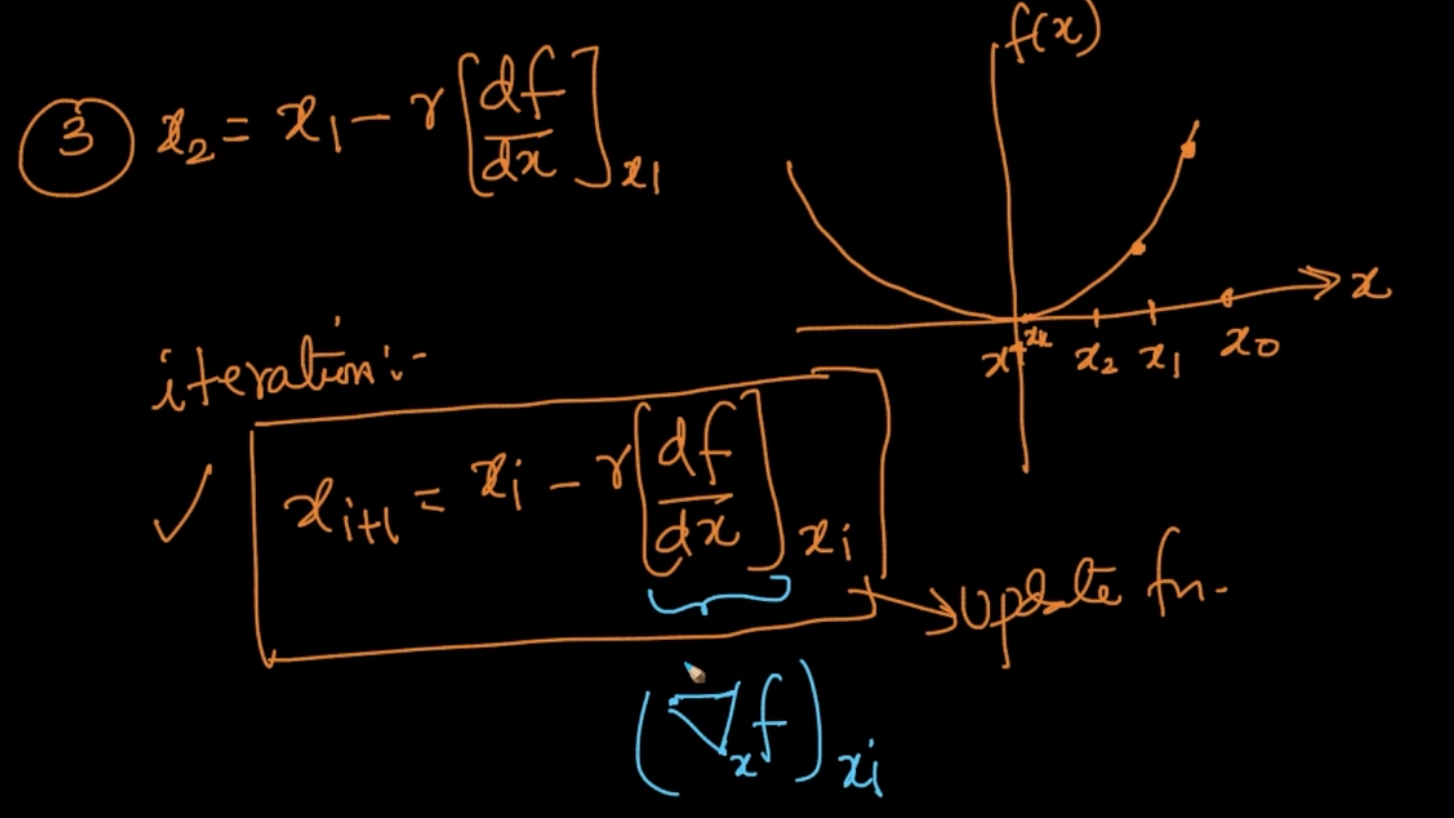 ③ x₂ = x₁ - r [df/dx]x₁
f(x)
x
x* xk x₂ x₁ x₀
iteration:-
✓ xi+1 = xi - r [df/dx]xi
→ Update fn.
(∇x f)xi